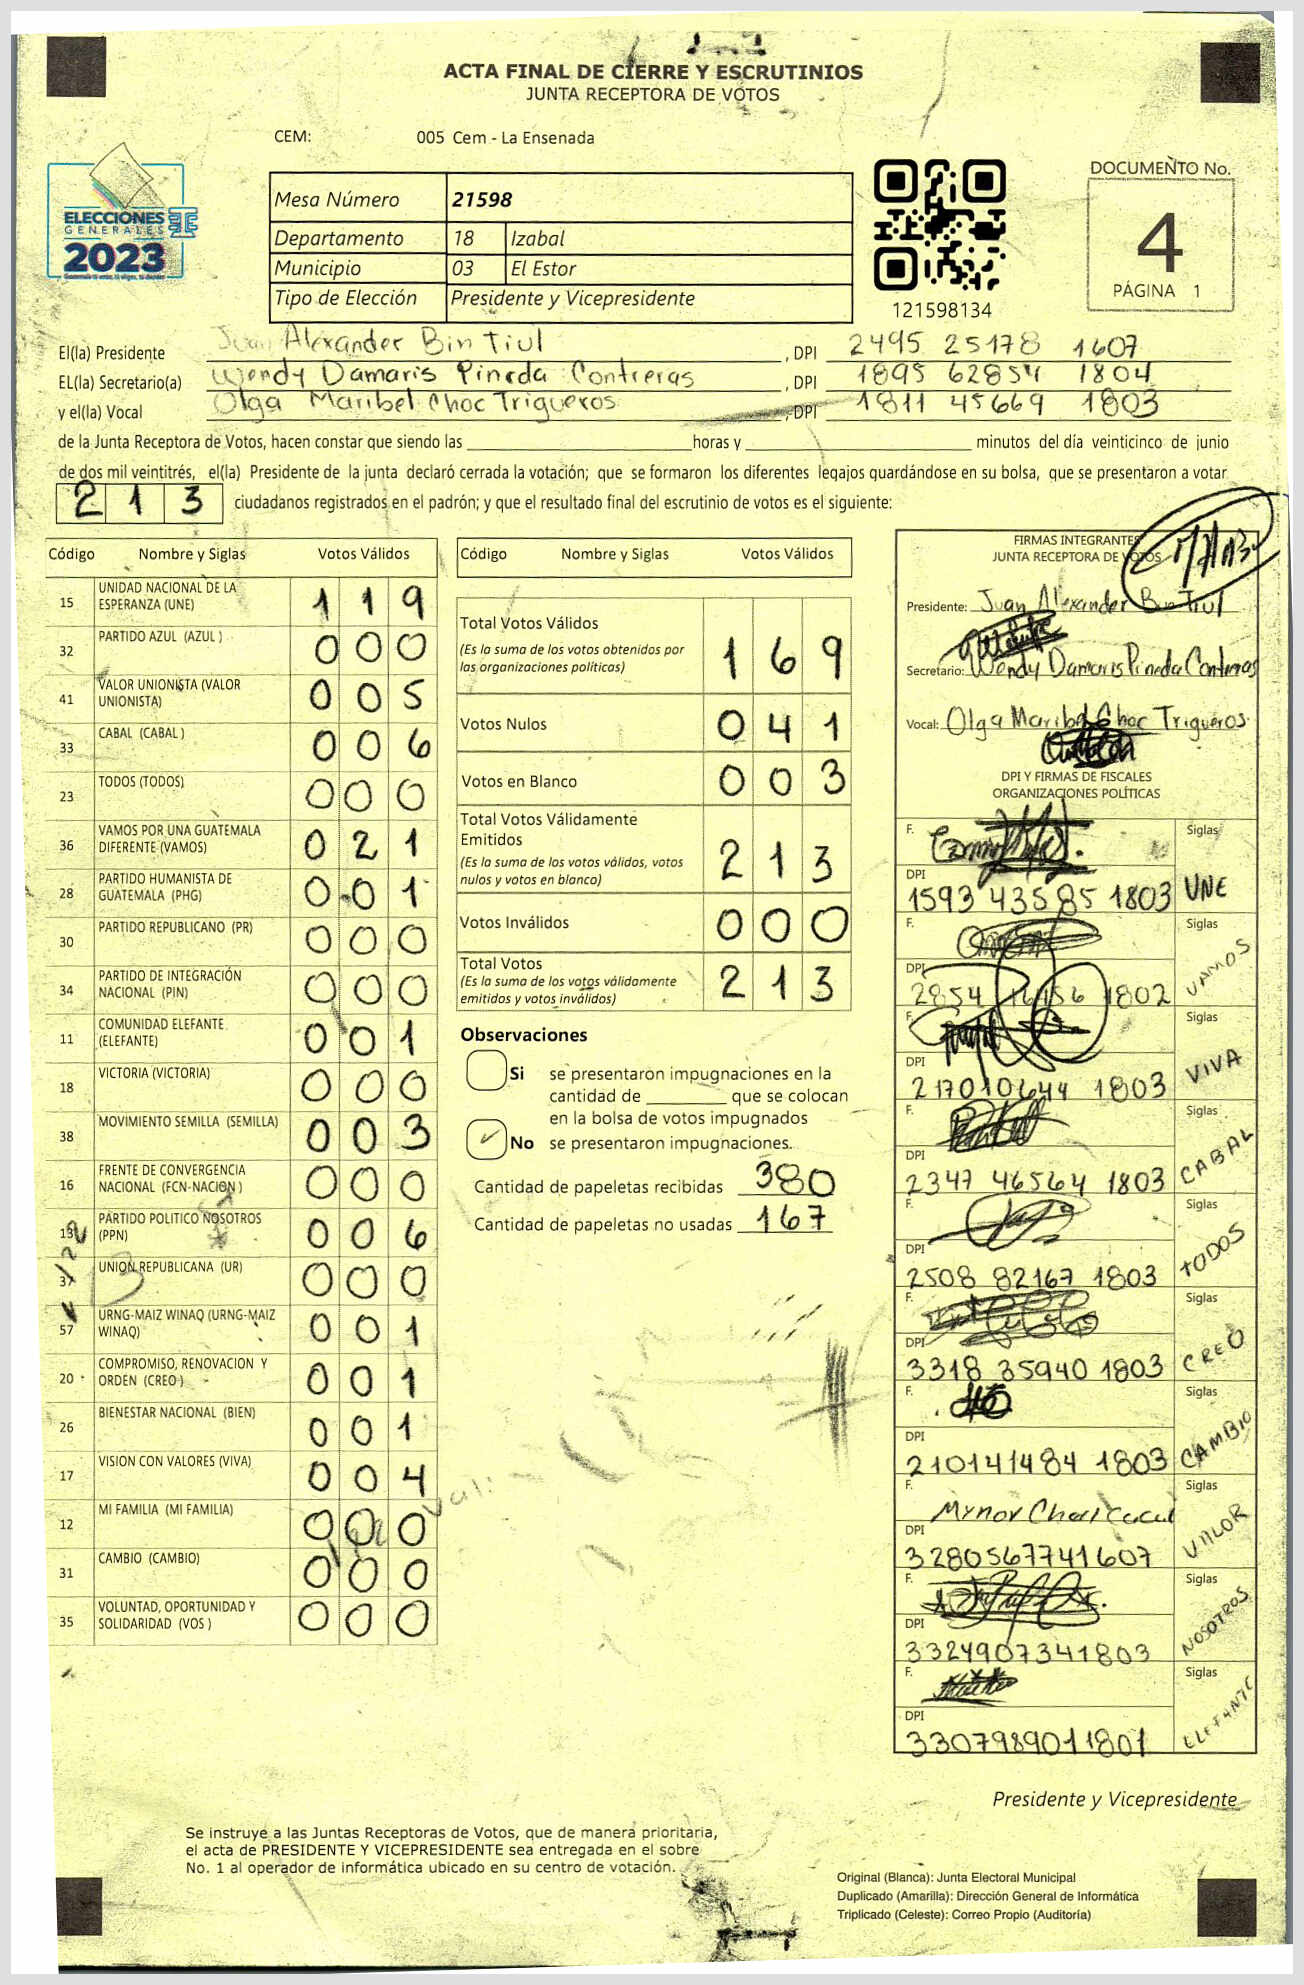 ACTA FINAL DE CIERRE Y ESCRUTINIOS
JUNTA RECEPTORA DE VOTOS
CEM: 005 Cem - La Ensenada
ELECCIONES
GENERALES
2023
Mesa Número 21598
Departamento 18 Izabal
Municipio 03 El Estor
Tipo de Elección Presidente y Vicepresidente
121598134
DOCUMENTO No.
4
PÁGINA 1
El(la) Presidente Juan Alexander Bin Tiul , DPI 2495 25178 1607
EL(la) Secretario(a) Wendy Damaris Pineda Contreras , DPI 1895 62854 1804
y el(la) Vocal Olga Maribel Choc Trigueros , DPI 1811 45669 1803
de la Junta Receptora de Votos, hacen constar que siendo las horas y minutos del día veinticinco de junio
de dos mil veintitrés, el(la) Presidente de la junta declaró cerrada la votación; que se formaron los diferentes legajos guardándose en su bolsa, que se presentaron a votar
213 ciudadanos registrados en el padrón; y que el resultado final del escrutinio de votos es el siguiente:
Código Nombre y Siglas Votos Válidos
15 UNIDAD NACIONAL DE LA ESPERANZA (UNE) 1 1 9
32 PARTIDO AZUL (AZUL ) 0 0 0
41 VALOR UNIONISTA (VALOR UNIONISTA) 0 0 5
33 CABAL (CABAL ) 0 0 6
23 TODOS (TODOS) 0 0 0
36 VAMOS POR UNA GUATEMALA DIFERENTE (VAMOS) 0 2 1
28 PARTIDO HUMANISTA DE GUATEMALA (PHG) 0 0 1
30 PARTIDO REPUBLICANO (PR) 0 0 0
34 PARTIDO DE INTEGRACIÓN NACIONAL (PIN) 0 0 0
11 COMUNIDAD ELEFANTE (ELEFANTE) 0 0 1
18 VICTORIA (VICTORIA) 0 0 0
38 MOVIMIENTO SEMILLA (SEMILLA) 0 0 3
16 FRENTE DE CONVERGENCIA NACIONAL (FCN-NACION ) 0 0 0
13 PARTIDO POLITICO NOSOTROS (PPN) 0 0 6
37 UNION REPUBLICANA (UR) 0 0 0
57 URNG-MAIZ WINAQ (URNG-MAIZ WINAQ) 0 0 1
20 COMPROMISO, RENOVACION Y ORDEN (CREO ) 0 0 1
26 BIENESTAR NACIONAL (BIEN) 0 0 1
17 VISION CON VALORES (VIVA) 0 0 4
12 MI FAMILIA (MI FAMILIA) 0 0 0
31 CAMBIO (CAMBIO) 0 0 0
35 VOLUNTAD, OPORTUNIDAD Y SOLIDARIDAD (VOS ) 0 0 0
Código Nombre y Siglas Votos Válidos
Total Votos Válidos 1 6 9
(Es la suma de los votos obtenidos por
las organizaciones políticas)
Votos Nulos 0 4 1
Votos en Blanco 0 0 3
Total Votos Válidamente
Emitidos 2 1 3
(Es la suma de los votos válidos, votos
nulos y votos en blanco)
Votos Inválidos 0 0 0
Total Votos 2 1 3
(Es la suma de los votos válidamente
emitidos y votos inválidos)
Observaciones
Si se presentaron impugnaciones en la
cantidad de que se colocan
en la bolsa de votos impugnados
No se presentaron impugnaciones.
Cantidad de papeletas recibidas 380
Cantidad de papeletas no usadas 167
FIRMAS INTEGRANTES
JUNTA RECEPTORA DE VOTOS
Presidente: Juan Alexander Bin Tiul
Secretario: Wendy Damaris Pineda Contreras
Vocal: Olga Maribel Choc Trigueros
DPI Y FIRMAS DE FISCALES
ORGANIZACIONES POLÍTICAS
F. Siglas
DPI 1593 43585 1803 UNE
F. Siglas
DPI 2854 16156 1802 VAMOS
F. Siglas
DPI 217010644 1803 VIVA
F. Siglas
DPI 2347 46564 1803 CABAL
F. Siglas
DPI 2508 82167 1803 TODOS
F. Siglas
DPI 3318 35940 1803 CREO
F. Siglas
DPI 210141484 1803 CAMBIO
F. Siglas
Mynor
DPI 3280567741607 VALOR
F. Siglas
DPI 3324907341803 NOSOTROS
F. Siglas
DPI 3307989011801 ELEFANTE
Presidente y Vicepresidente
Se instruye a las Juntas Receptoras de Votos, que de manera prioritaria,
el acta de PRESIDENTE Y VICEPRESIDENTE sea entregada en el sobre
No. 1 al operador de informática ubicado en su centro de votación.
Original (Blanca): Junta Electoral Municipal
Duplicado (Amarilla): Dirección General de Informática
Triplicado (Celeste): Correo Propio (Auditoría)